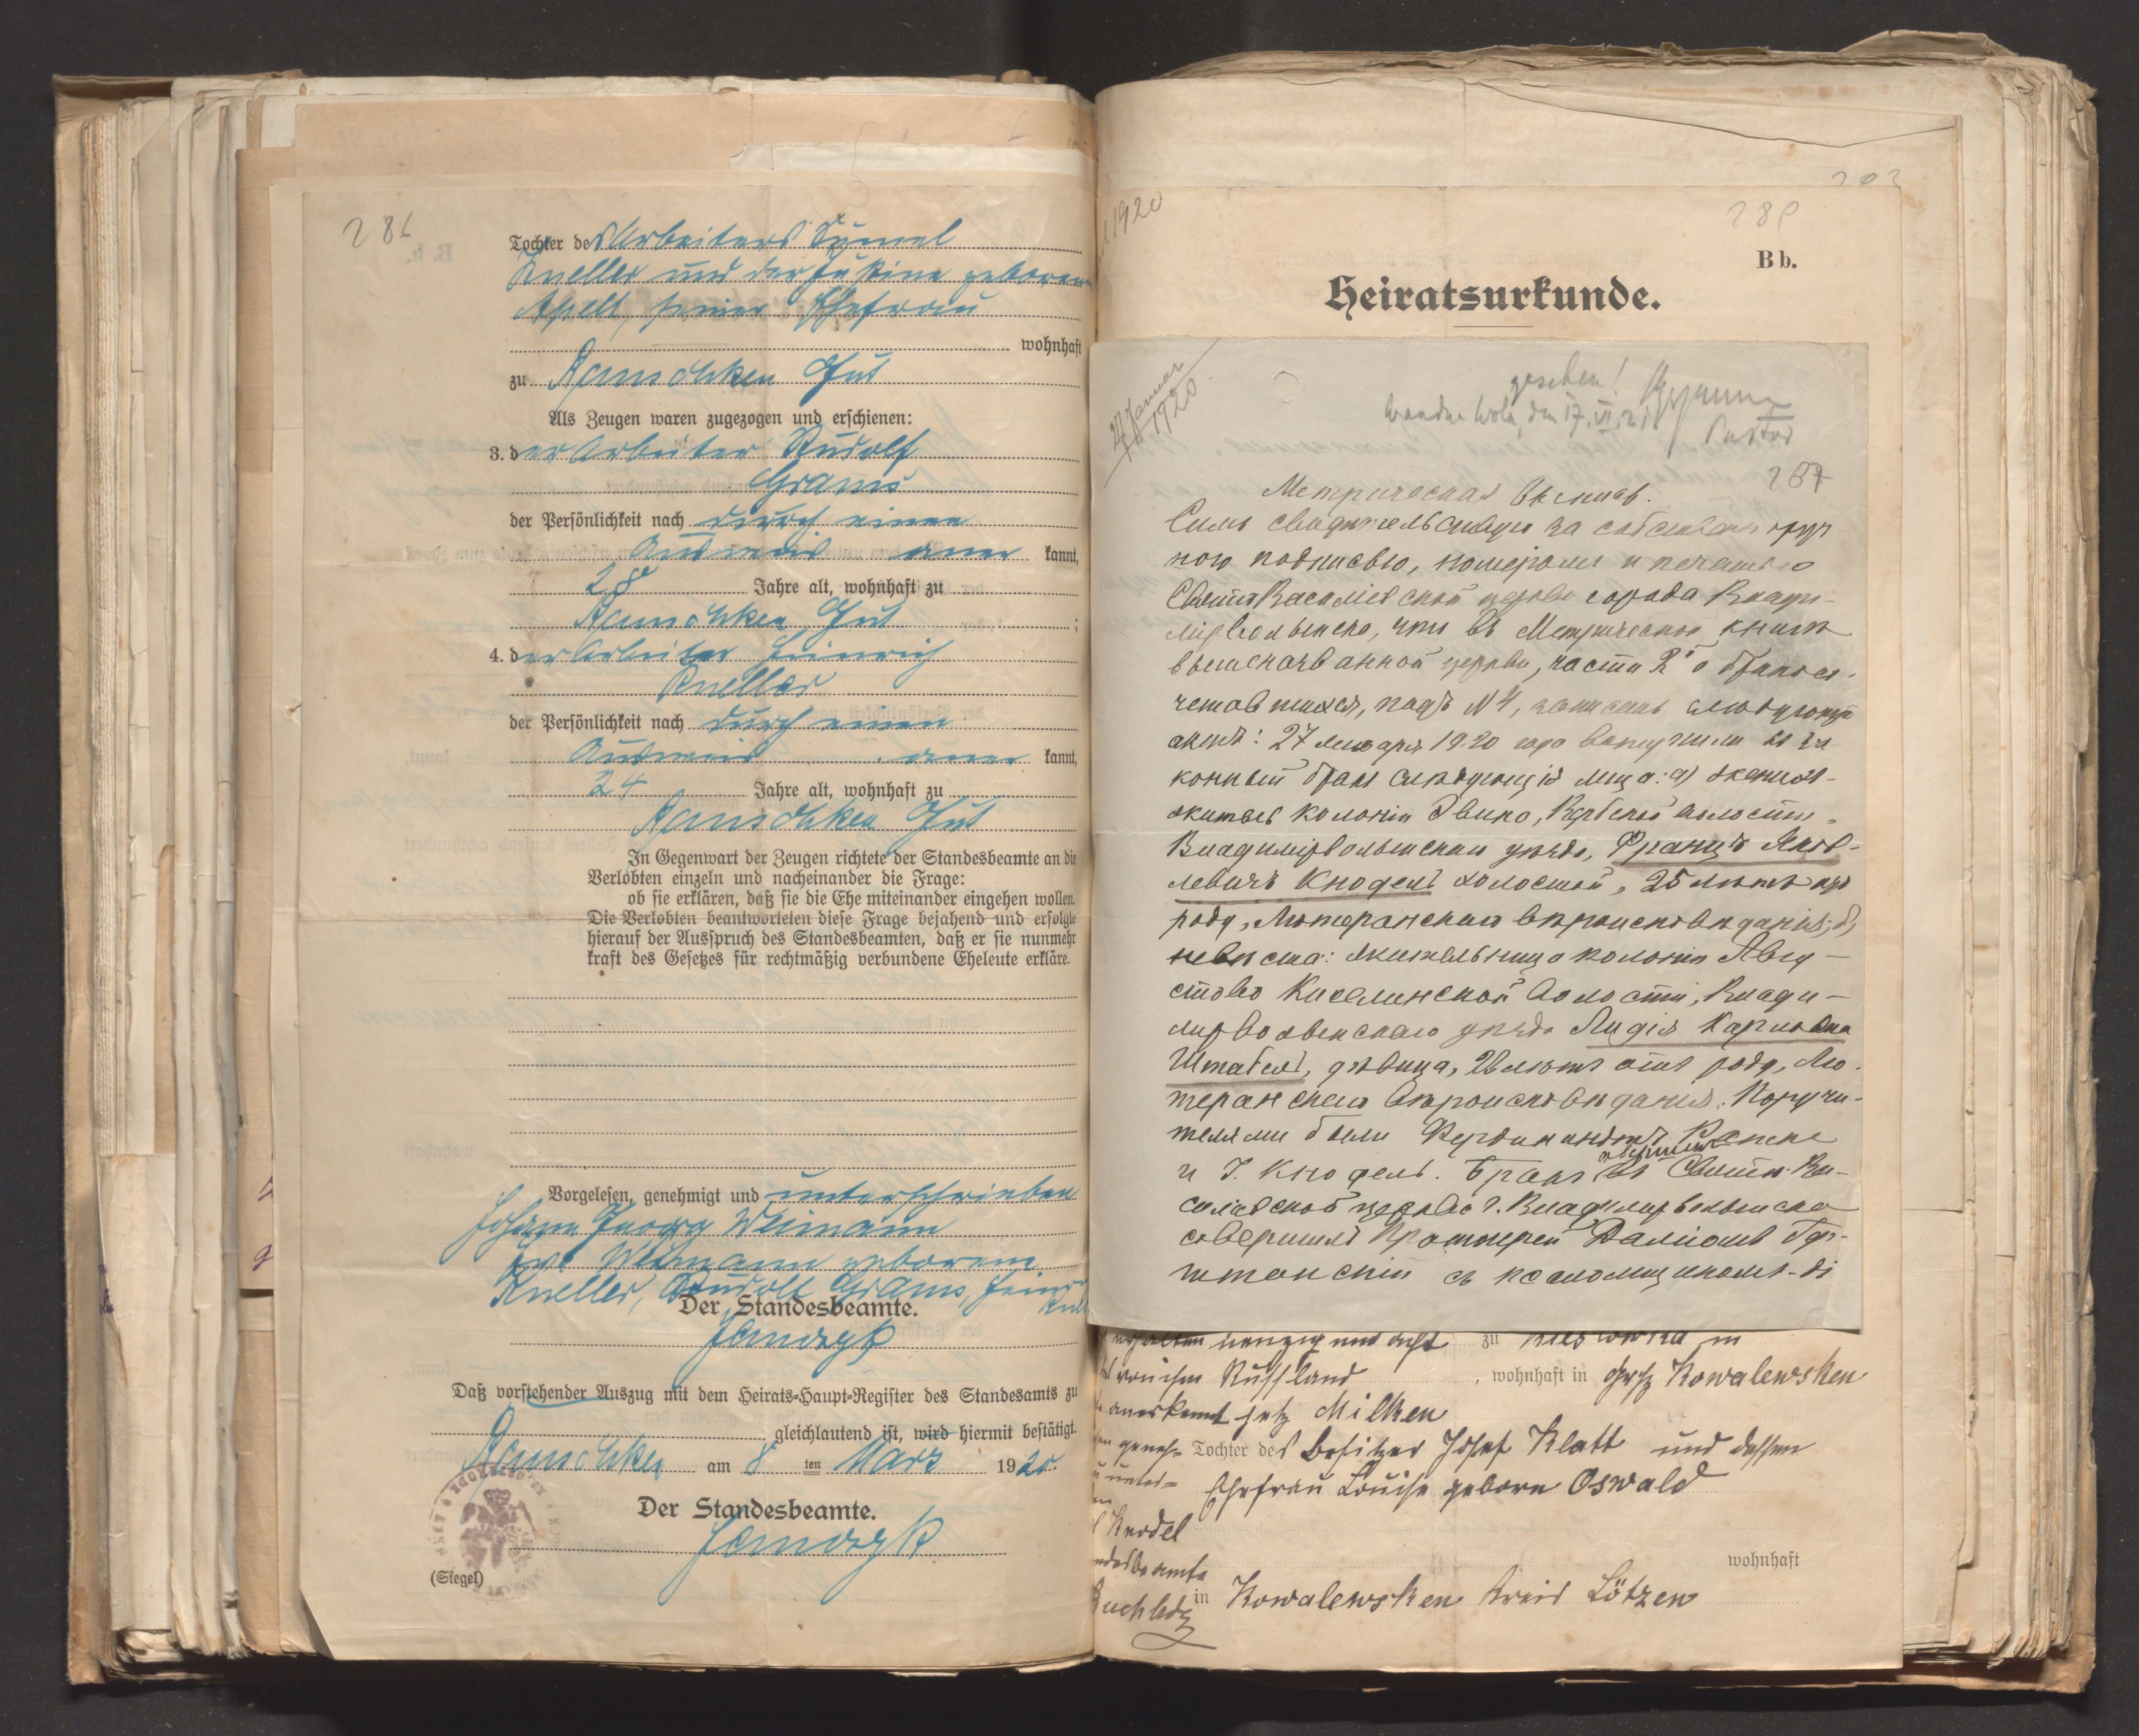 286
Tochter des Arbeiters Samel
Kneller und der Justine geborenen
Apell, seiner Ehefrau
wohnhaft
zu Ranschken Gut
Als Zeugen waren zugezogen und erschienen:
3. der Arbeiter Rudolf
Grams
der Persönlichkeit nach durch einen
Ausweis aner kannt,
28 Jahre alt, wohnhaft zu
Ranschken Gut;
4. der Arbeiter Heinrich
Kneller
der Persönlichkeit nach durch einen
Ausweis aner kannt,
24 Jahre alt, wohnhaft zu
Ranschken Gut
In Gegenwart der Zeugen richtete der Standesbeamte an die
Verlobten einzeln und nacheinander die Frage:
ob sie erklären, daß sie die Ehe miteinander eingehen wollen.
Die Verlobten beantworteten diese Frage bejahend und erfolgte
hierauf der Ausspruch des Standesbeamten, daß er sie nunmehr
kraft des Gesetzes für rechtmäßig verbundene Eheleute erkläre.
Vorgelesen, genehmigt und unterschrieben
Johann Georg Weimann
Weimann geborene
Kneller, Rudolf Grams, Heinr
Der Standesbeamte.
Daß vorstehender Auszug mit dem Heirats-Haupt-Register des Standesamts zu
gleichlautend ist, wird hiermit bestätigt.
Ranschken am 8 ten März 1920.
Der Standesbeamte.
(Siegel)
1920
B b.
Heiratsurkunde.
27 Januar
1920
gesehen!
den 17. VI. 21
Pastor
287
Метрическая выпись.
Симъ свидѣтельствую за собственноруч
ною подписью, номеромъ и печатью
Свято Васильевской церкви города Влади-
мірволынска, что въ Метрической книгѣ
вышеназванной церкви, части 2й о бракосо-
четавшихся, подъ № 4, записанъ слѣдующій
актъ: 27 января 1920 года вступили въ за-
конный бракъ слѣдующія лица: а) женихъ-
житель колоніи Вербской волости,
Владимірволынскаго уѣзда, Францъ Яков-
левичъ Кнодель холостой, 25 лѣтъ отъ
роду, Лютеранскаго вѣроисповѣданія; б)
невѣста: жительница колоніи Авгу-
стово Киселинской волости, Влади-
мірволынскаго уѣзда Лидія Карловна
Штабель, дѣвица, лѣтъ отъ роду, Лю-
теранскаго вѣроисповѣданія. Поручи-
телями были Фердинандъ
и І. Кнодель. Бракъ въ Свято-Ва-
сильевской церкви г. Владимірволынска
совершилъ Протоіерей Даміанъ Гер-
штанскій съ псаломщикомъ-ді
neunzig und acht zu in
Russland, wohnhaft in jetzt Kowalewsken
anerkannt jetz Milken
Tochter des Besitzer Josef Klatt und dessen
Ehefrau Louise geborn Oswald
Knodel
wohnhaft
in Kowalewsken Kreis Lötzen